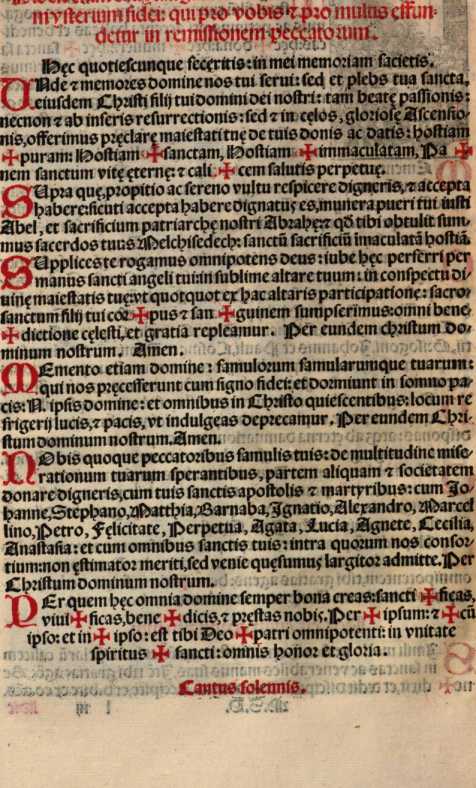 mysterium fidei: qui pro vobis ⁊ pro multis effun-
detur in remissionem peccatorum.
Hęc quotiescunque feceritis: in mei memoriam facietis.
UNde ⁊ memores domine nos tui serui: sed et plebs tua sancta,
eiusdem Christi filij tui domini dei nostri: tam beatę passionis:
necnon ⁊ ab inferis resurrectionis: sed ⁊ in cęlos, gloriosę Ascensio-
nis, offerimus pręclarę maiestati tuę de tuis donis ac datis: hostiam
✠ puram: Hostiam ✠ sanctam, Hostiam ✠ immaculatam, Pa ✠
nem sanctum vitę ęternę: ⁊ cali ✠ cem salutis perpetuę.
SUpra quę, propitio ac sereno vultu respicere digneris, ⁊ accepta
habere: sicuti accepta habere dignatus es, munera pueri tui iusti
Abel, et sacrificium patriarchę nostri Abrahę: ⁊ qđ tibi obtulit sum-
mus sacerdos tuus Melchisedech: sanctū sacrificiū īmaculatā hostiā.
SUpplices te rogamus omnipotens deus: iube hęc perferri per
manus sancti angeli tui: in sublime altare tuum: in conspectu di-
uinę maiestatis tuę: vt quotquot ex hac altaris participatione: sacro-
sanctum filij tui cor ✠ pus ⁊ san ✠ guinem sumpserimus: omni bene-
✠ dictione cęlesti, et gratia repleamur. Per eundem christum do-
minum nostrum. Amen.
MEmento etiam domine: famulorum famularumque tuarum:
qui nos pręcesserunt cum signo fidei: et dormiunt in somno pa-
cis: N. ipsis domine: et omnibus in Christo quiescentibus: locum re-
frigerij lucis, ⁊ pacis, vt indulgeas deprecamur. Per eundem Chri-
stum dominum nostrum. Amen.
NObis quoque peccatoribus famulis tuis: de multitudine mise-
rationum tuarum sperantibus, partem aliquam ⁊ societatem
donare digneris, cum tuis sanctis apostolis ⁊ martyribus: cum Jo-
hanne, Stephano, Matthia, Barnaba, Ignatio, Alexandro, Marcel-
lino, Petro, Felicitate, Perpetua, Agata, Lucia, Agnete, Cecilia,
Anastasia: et cum omnibus sanctis tuis: intra quorum nos consor-
tium: non ęstimator meriti, sed venie quęsumus largitor admitte. Per
Christum dominum nostrum.
PEr quem hęc omnia domine semper bona creas: sancti ✠ ficas,
viui ✠ ficas, bene ✠ dicis, ⁊ pręstas nobis. Per ✠ ipsum: ⁊ ✠ cū
ipso: et in ✠ ipso: est tibi Deo ✠ patri omnipotenti: in vnitate
spiritus ✠ sancti: omnis honor et gloria.
Cantus solennis.